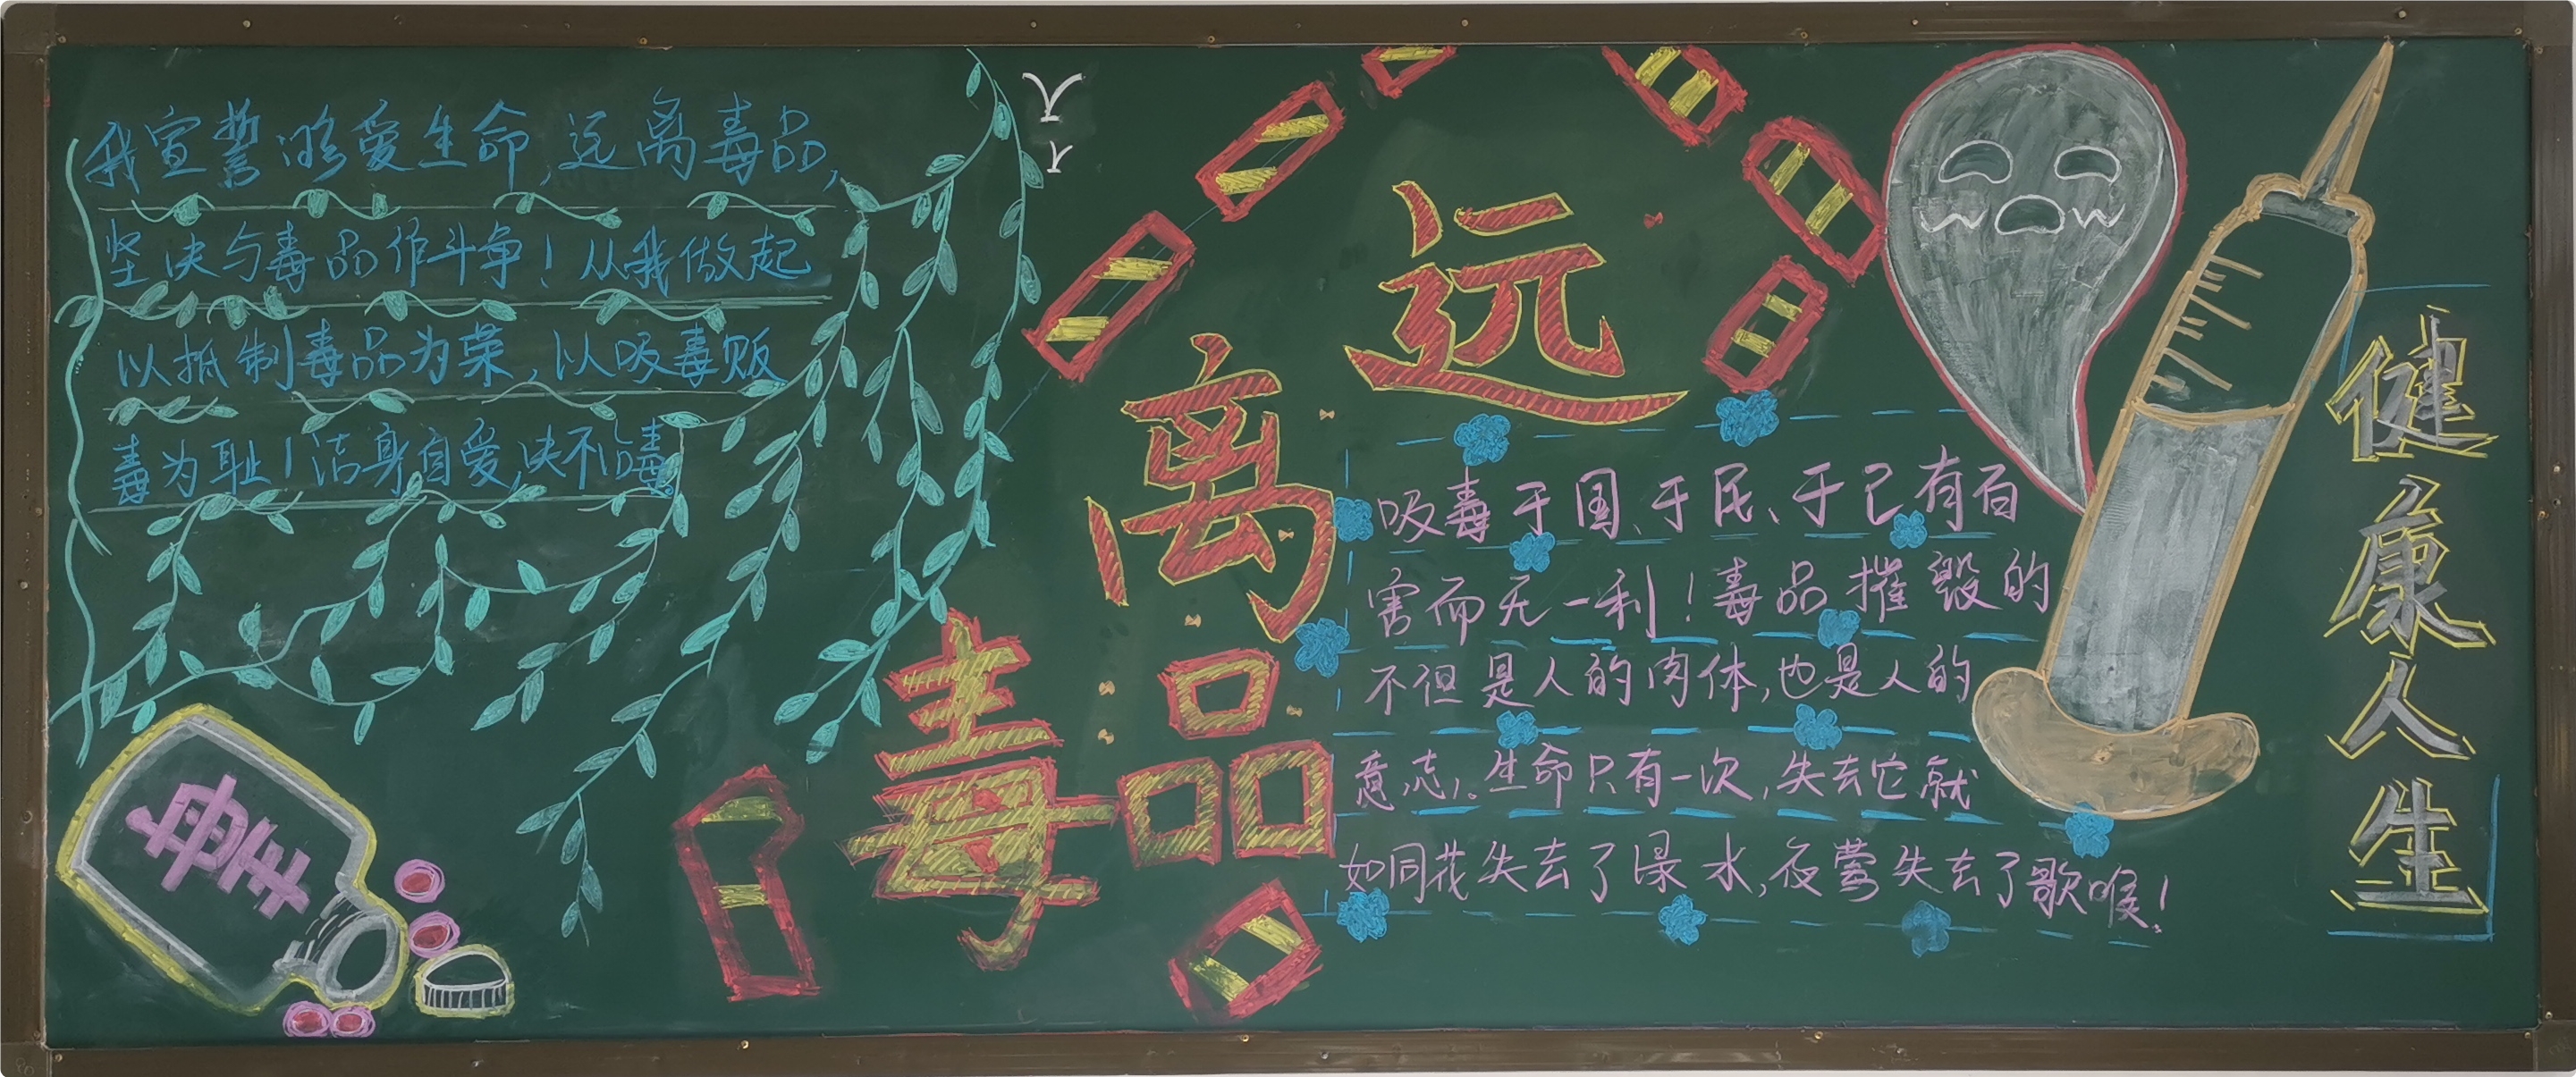 我宣誓：珍爱生命，远离毒品，
坚决与毒品作斗争！从我做起
以抵制毒品为荣，以吸毒贩
毒为耻！洁身自爱，决不吸毒。
远
离
毒品
吸毒于国、于民、于己有百
害而无一利！毒品摧毁的
不但是人的肉体，也是人的
意志。生命只有一次，失去它就
如同花失去了绿水，夜莺失去了歌喉！
健
康
人
生
毒